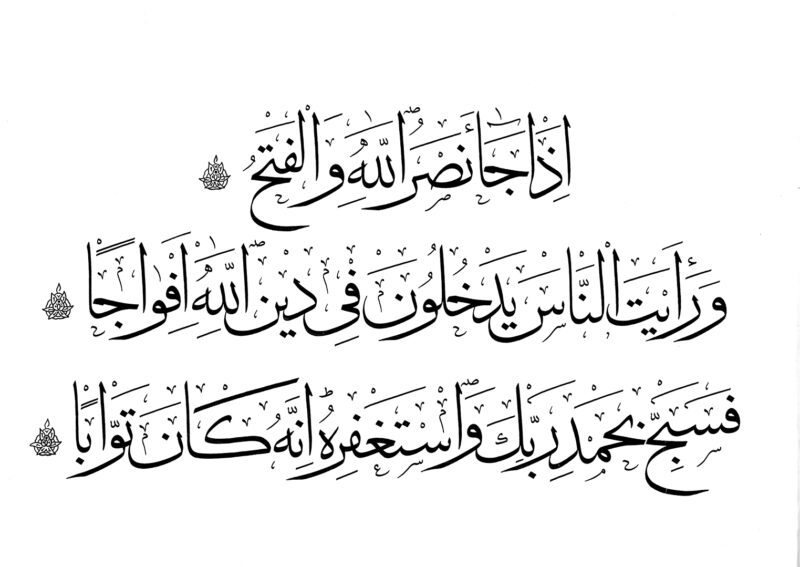 إِذَا جَاءَ نَصْرُ اللَّهِ وَالْفَتْحُ
وَرَأَيْتَ النَّاسَ يَدْخُلُونَ فِي دِينِ اللَّهِ أَفْوَاجًا
فَسَبِّحْ بِحَمْدِ رَبِّكَ وَاسْتَغْفِرْهُ إِنَّهُ كَانَ تَوَّابًا